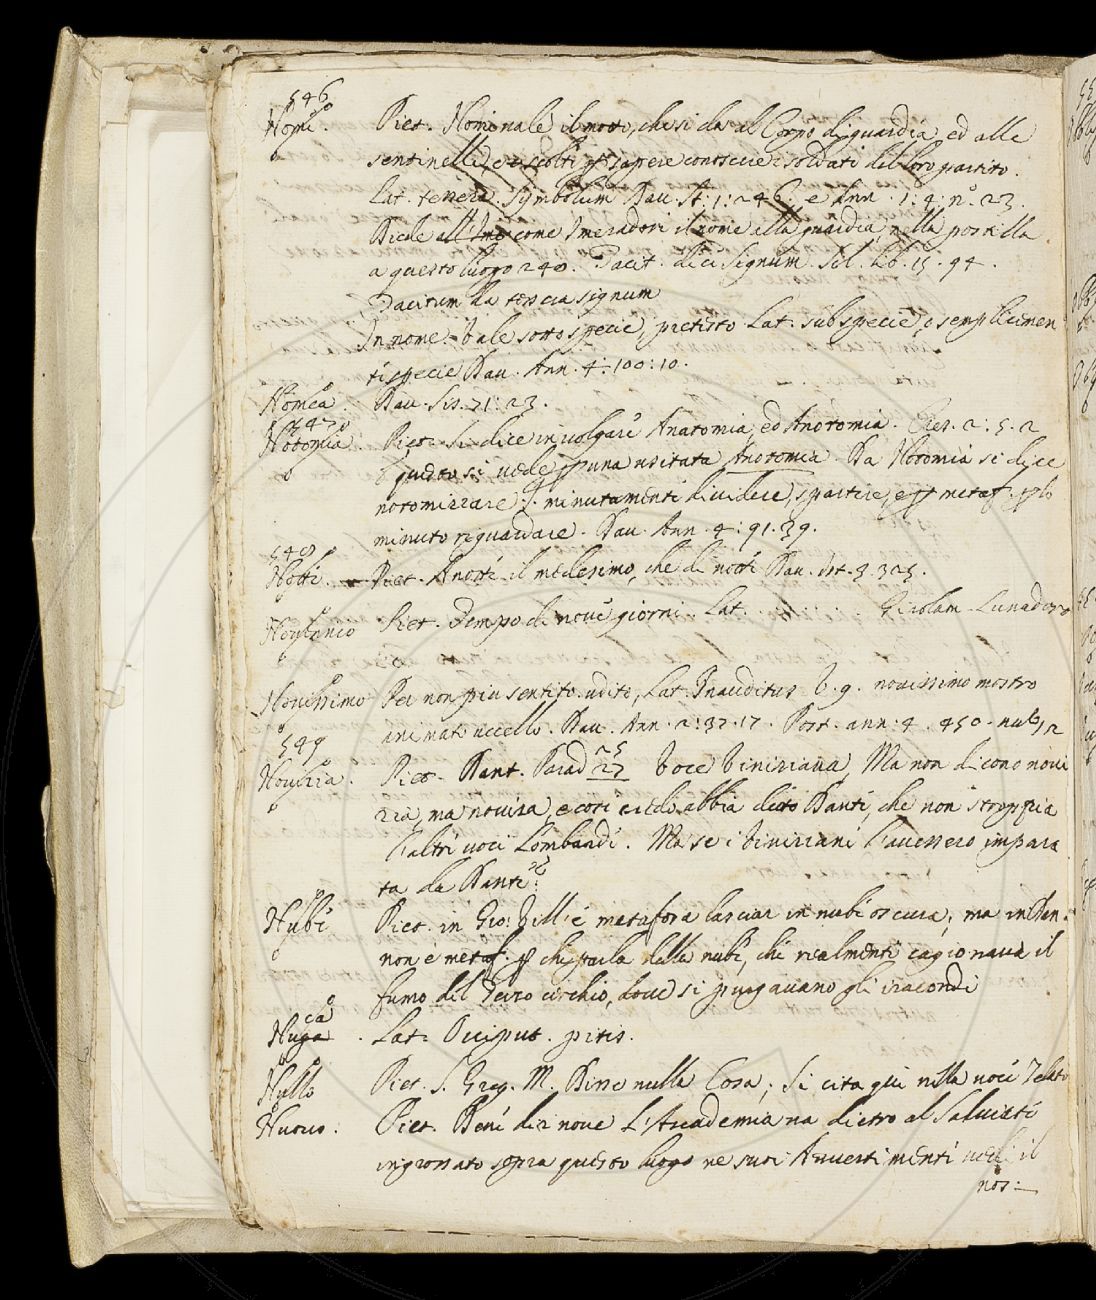 546
Nome. Piet. Nominale il moto, che si da al Corpo di guardia, ed alle
sentinelle, e ascolti per sapere conoscere i soldati del loro partito.
Lat. tessera. Symbolum Dav. St. 1: 246. e Ann. 1: 4: n.o 23.
come Imeradori il nome alla guardia, nella postilla
a questo luogo 240. Tacit. dice signum. Sil. lib. 15. 94.
Tacitum dat tessera signum
In nome. Vale sotto specie, pretesto Lat. sub specie, o semplicimen
te specie Dav. Ann. 4: 100: 10.
Nomea. Dav. Sis. 71: 23.
547
Notomia. Piet. Si dice in volgare Anatomia, ed Anotomia. Cres. 2: 5. 2
questo si vede per una usitata Anotomia. Da Notomia si dice
notomizzare. minutamente dividere, spartire, e per metaf. per lo
minuto riguardare. Dav. Ann. 4: 91. 39.
548
Notte. Piet. A notte il medesimo, che di notte Dav. Ist. 3. 325.
Novennio Piet. Tempo di nove giorni. Lat. Girolam. Lunadoro
Novissimo Per non piu sentito. udito, Lat. Inauditus V. g. novissimo mostro
uccello. Dav. Ann. 2: 37. 17. Post. ann. 4. 450.
549
Novizia. Piet. Dant. Parad 25 27 Voce Viniziana, Ma non dicono novi
zia, ma novizza, e così abbia detto Dante, che non stroppia
l'altre voci Lombarde. Ma se i Viniziani l'avessero impara
ta da Dante?
Nube Piet. in Gio: Vill. è metafora lasciar in nube oscura; ma in Dan.
non è metaf. per che parla delle nube, che realmente cagionava il
fumo del Terzo cerchio, dove si purgavano gli iracondi
Nuca. Lat. Occiput. pitis.
Nullo Piet. S. Greg. M. Dire nulla Cosa; Si cita qui nella voce Zelato
Nuovo. Piet. Bene dir nove L'Academia va dietro al Salviati
ingrossato sopra questo luogo ne suoi Avvertimenti vedi il
nos: